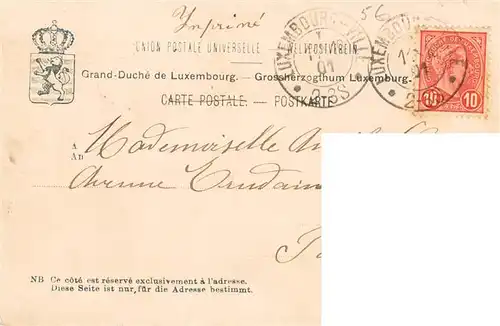 Imprimé
56
UNION POSTALE UNIVERSELLE — WELTPOSTVEREIN
Grand-Duché de Luxembourg. — Grossherzogthum Luxemburg.
CARTE POSTALE. — POSTKARTE
10 10
À
AN
Mademoiselle
Avenue Trudaine
NB Ce côté est réservé exclusivement à l'adresse.
Diese Seite ist nur, für die Adresse bestimmt.